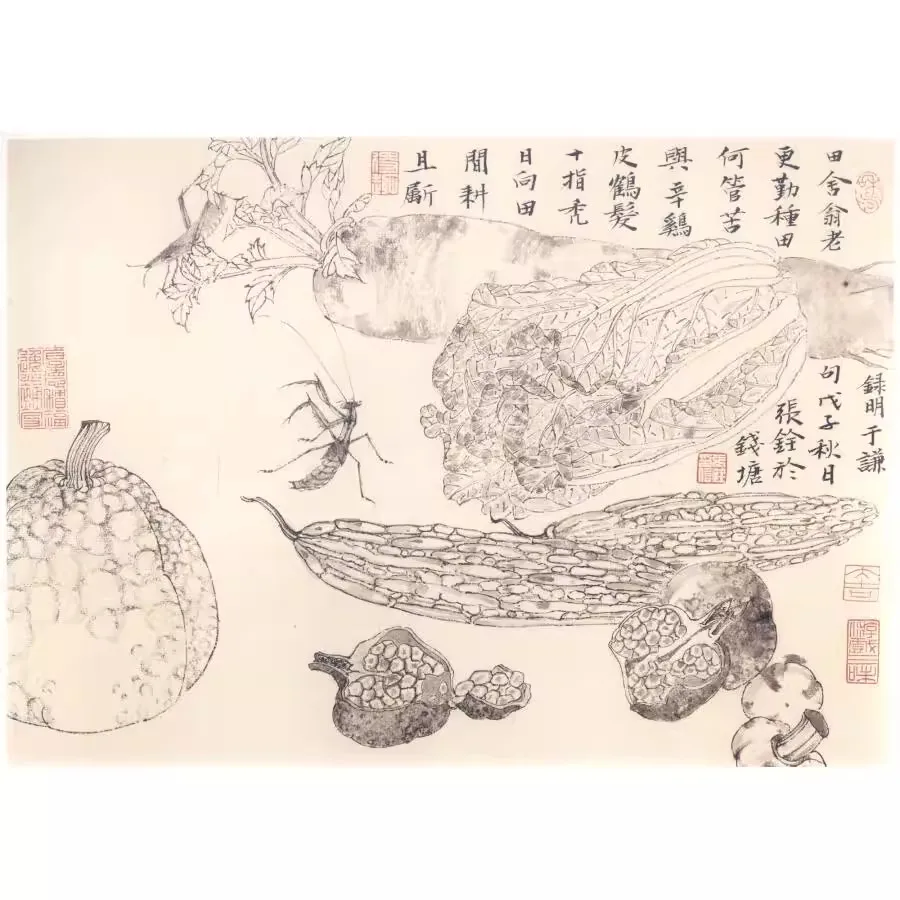 田舍翁老
更勤種田
何管苦
與辛鷄
皮鶴髮
十指禿
日向田
間耕
且斸
録明于謙
句戊子秋日
張銓於
錢塘
大吉